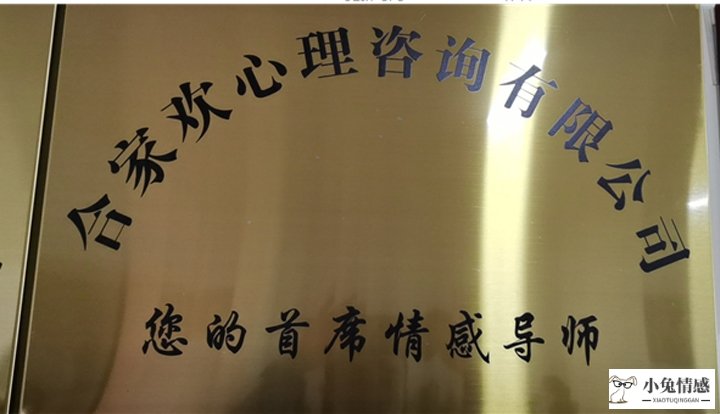 合家欢心理咨询有限公司
您的首席情感导师
小兔情感
XIAOTUQINGGAN